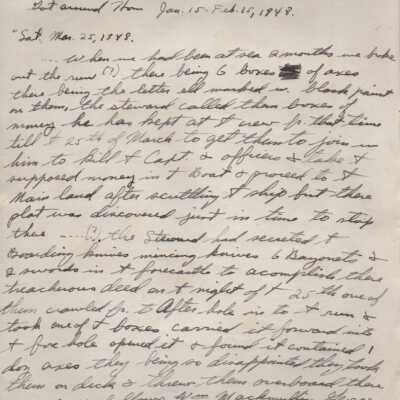 Got around Horn Jan. 15 - Feb. 15, 1848.
"Sat. Mar. 25, 1848.
... When we had been at sea 2 months we broke
out the run (?) there being 6 boxes of axes
there being the letter ell marked w. black paint
on them, the steward called them boxes of
money he has kept at t crew fr. that time
till t 25th of March to get them to join w
him to kill t Capt. & officers & take t
supposed money in t Boat & proceed to t
Main land after scuttling t ship but there
plot was discovered just in time to stop
there ... (?) the Steward had secreted t
Boarding knives mincing knives 6 Bayonets &
2 swords in t forecastle to acomplish there
treacherous deed on t night of t 25th one of
them crawled fr. t After hole in to t run &
took one of t boxes carried it forward into
t fore hole opened it & found it contained 1
doz axes they being so disappointed they took
them on deck & threw them overboard there
Wm